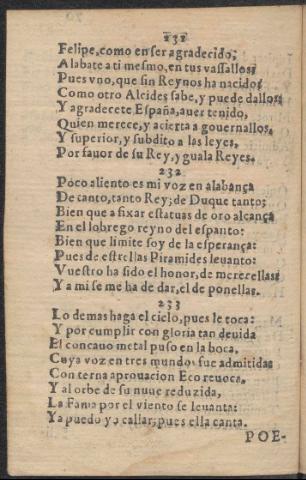 231
Felipe, como en ser agradecido;
Alabate a ti mesmo, en tus vassallos;
Pues vno, que sin Reynos ha nacido;
Como otro Alcides sabe, y puede dallos;
Y agradecete España, auer tenido,
Quien merece, y acierta a gouernallos,
Y superior, y subdito a las leyes,
Por fauor de su Rey, yguala Reyes.
232
Poco aliento es mi voz en alabança
De canto, tanto Rey; de Duque tanto;
Bien que a fixar estatuas de oro alcança
En el lobrego reyno del espanto:
Bien que limite soy de la esperança:
Pues de estrellas Piramides leuanto:
Vuestro ha sido el honor, de merecellas;
Y a mi se me ha de dar, el de ponellas.
233
Lo demas haga el cielo, pues le toca:
Y por cumplir con gloria tan deuida
El concauo metal puso en la boca,
Cuya voz en tres mundos fue admitida:
Con terna aprouacion Eco reuoca,
Y al orbe de su nuue reduzida,
La Fama por el viento se leuanta:
Ya puedo yo callar; pues ella canta.
POE-